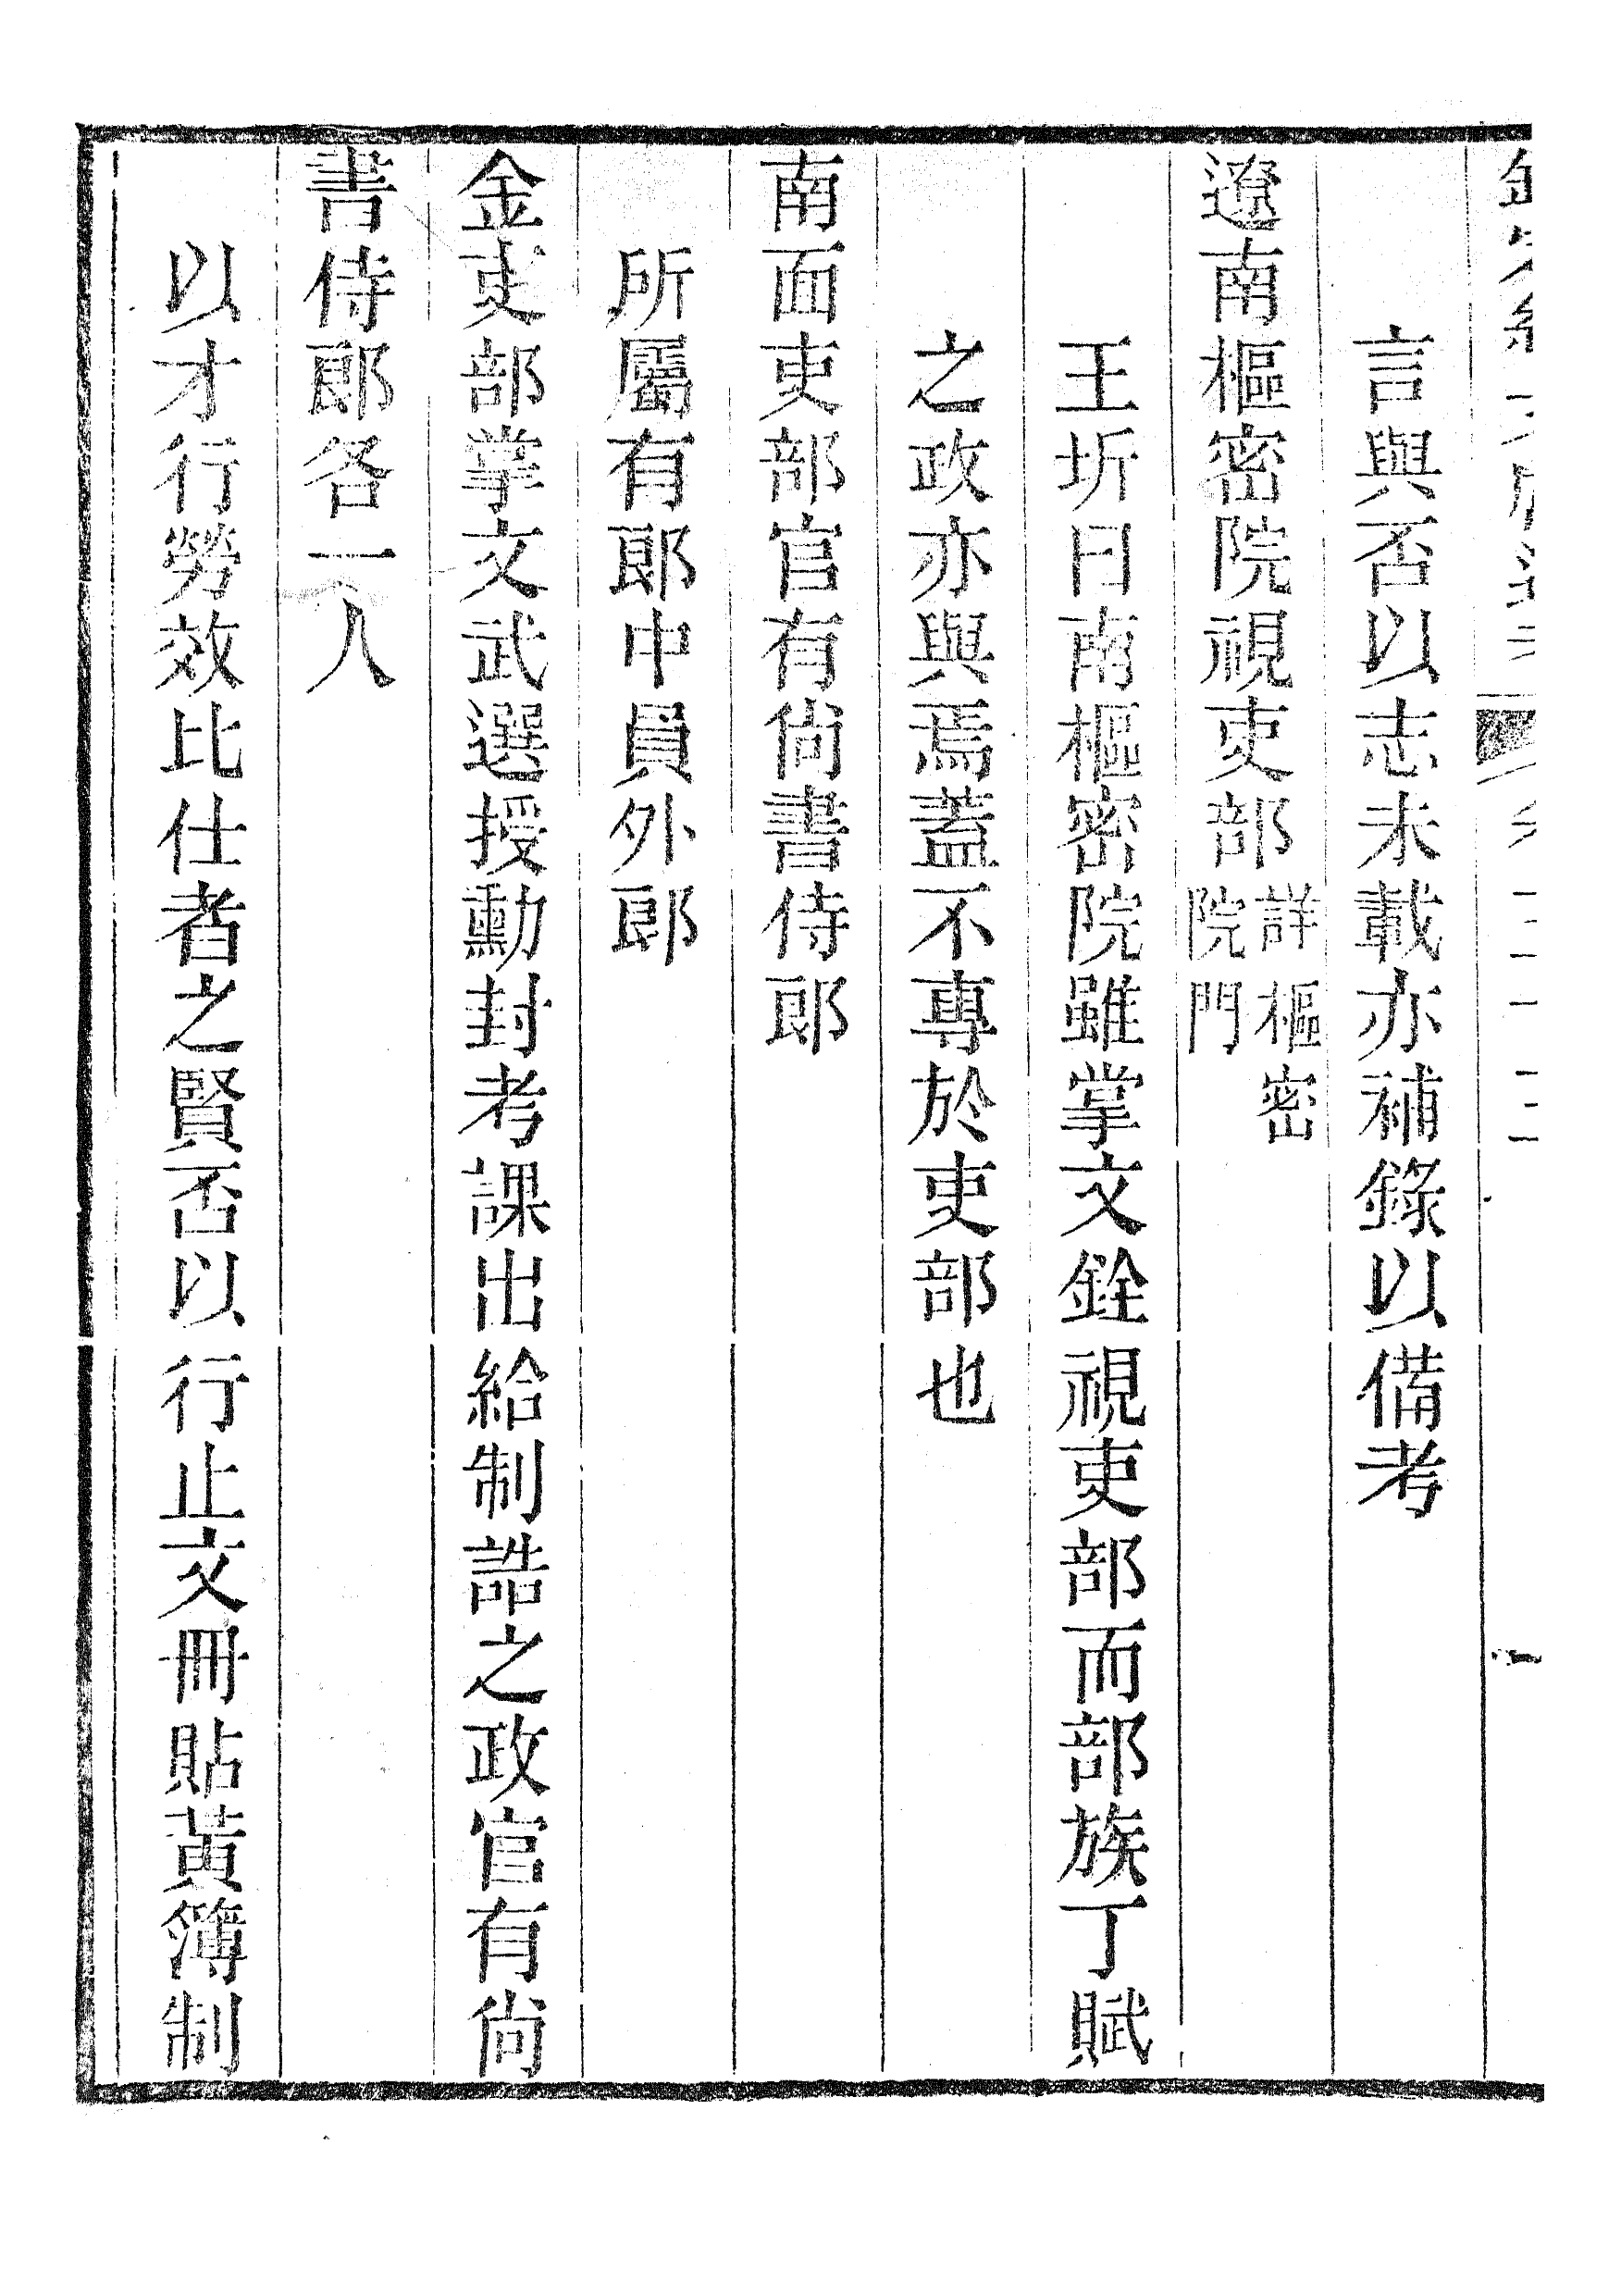 言與否以志未載亦補錄以備考
遼南樞密院視吏部詳樞密院門
王圻曰南樞密院雖掌文銓視吏部而部族丁賦
之政亦與焉蓋不專於吏部也
南面吏部官有尚書侍郎
所屬有郎中員外郎
金吏部掌文武選授勳封考課出給制誥之政官有尚
書侍郎各一人
以才行勞效比仕者之賢否以行止文冊貼黃簿制